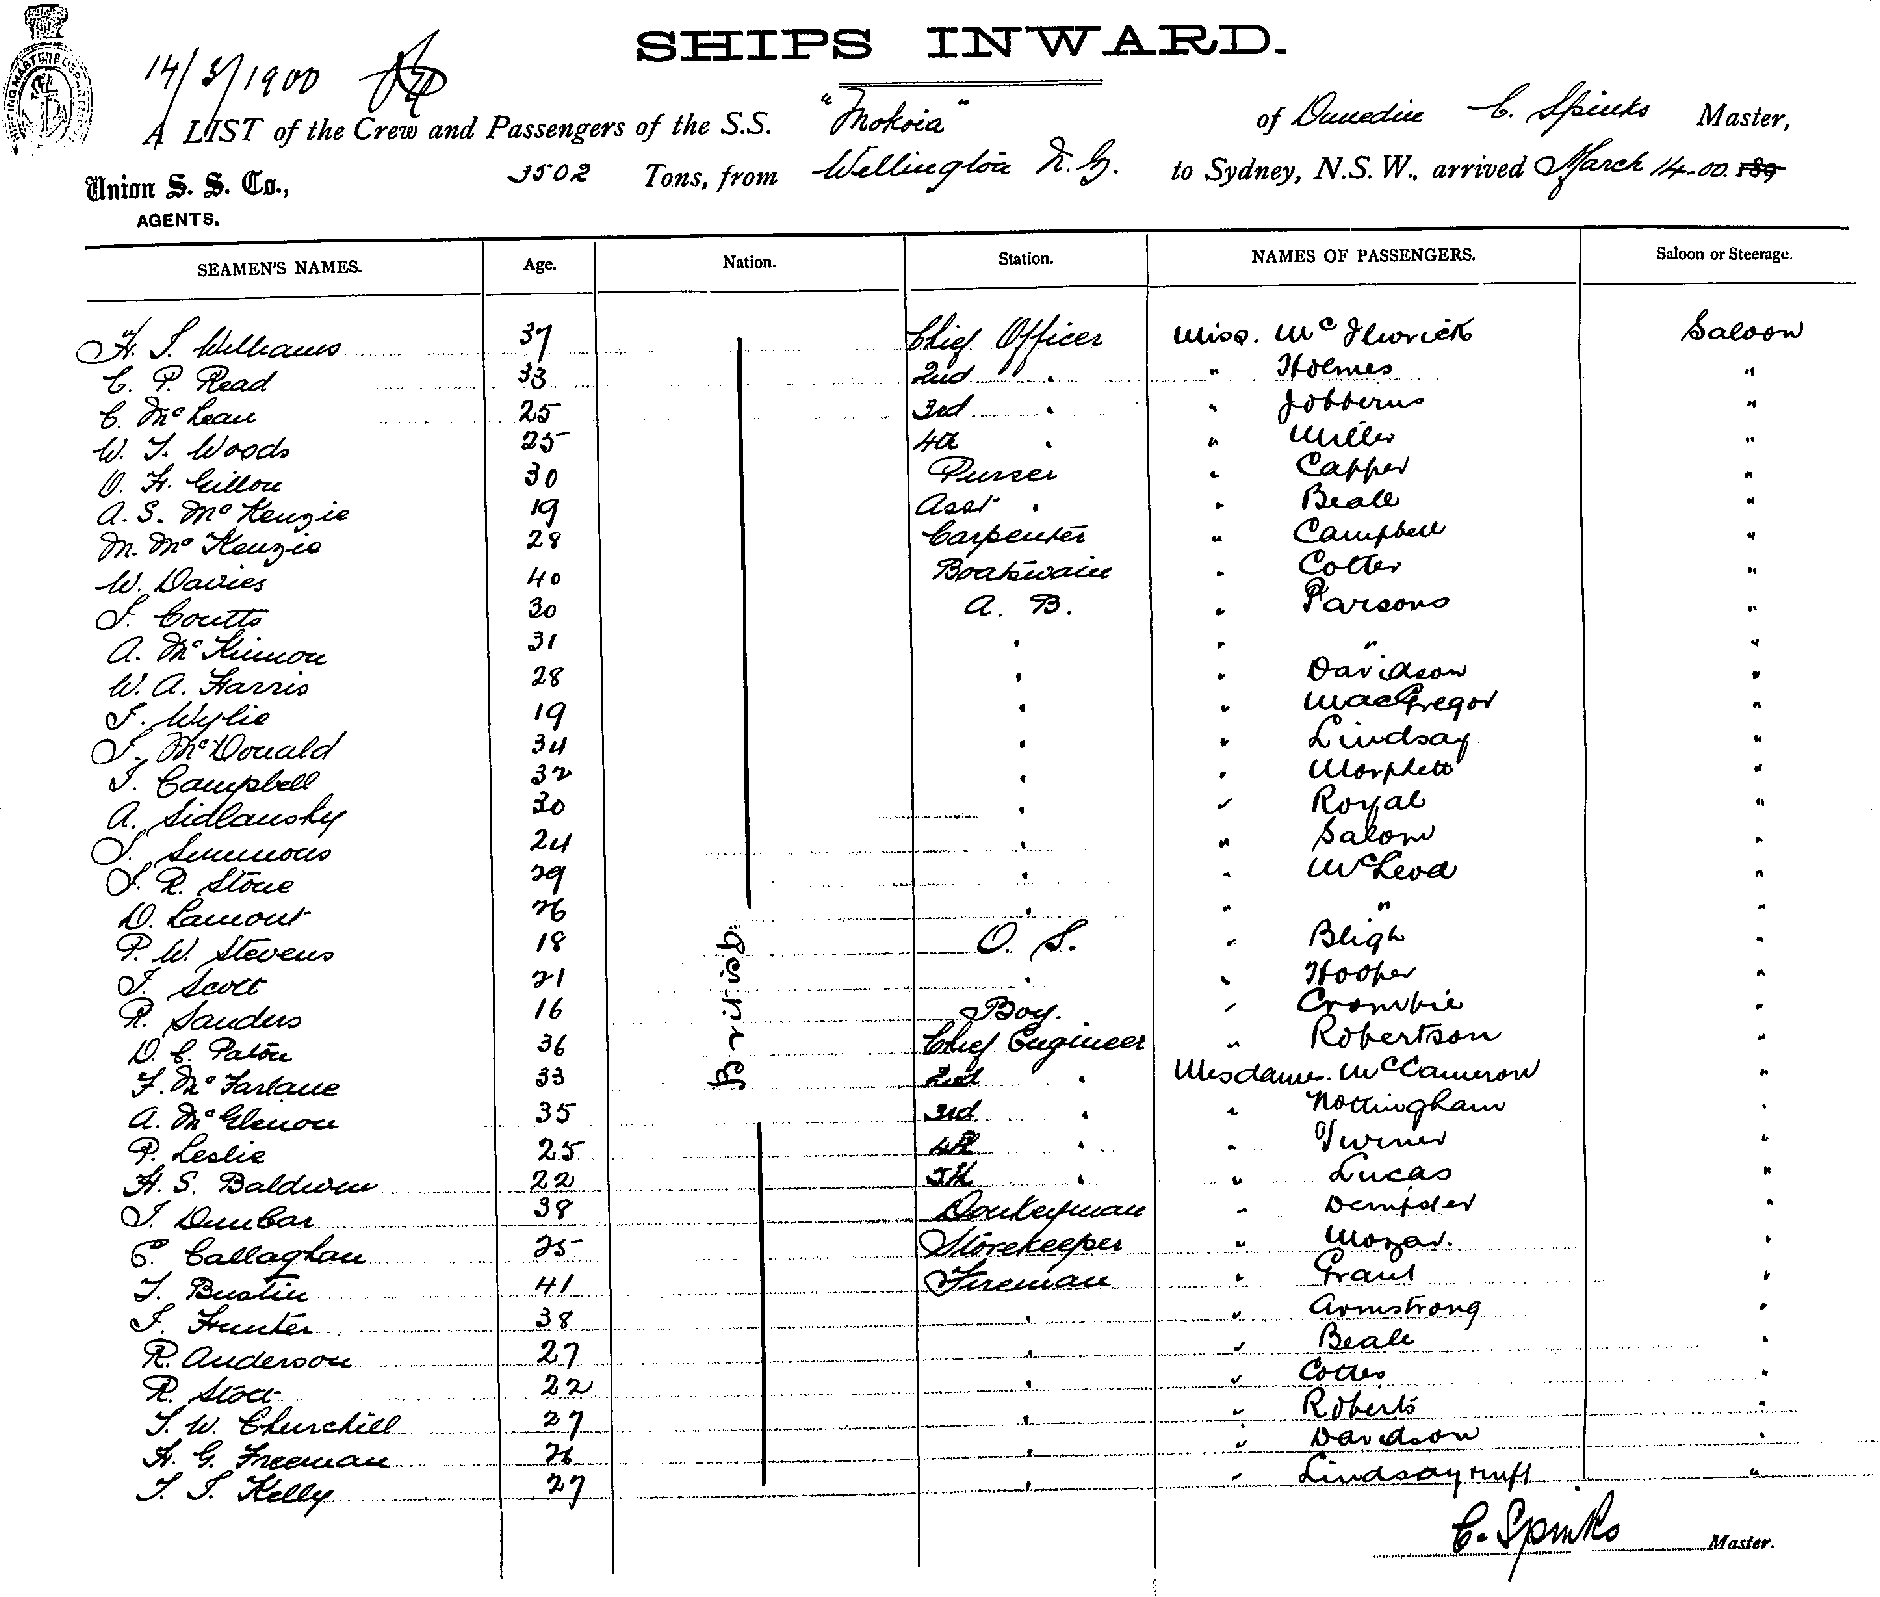 SHIPS INWARD.
14/3/1900
A LIST of the Crew and Passengers of the S.S. "Mokoia" of Dunedin C. Spinks Master,
Union S. S. Co., 3502 Tons, from Wellington N.Z. to Sydney, N.S.W., arrived March 14-00 189
AGENTS.
SEAMEN'S NAMES. Age. Nation. Station. NAMES OF PASSENGERS. Saloon or Steerage.
H. J. Williams 37 Chief Officer Miss. McIlwrick Saloon
C. P. Read 33 2nd " " Holmes "
C. McLean 25 3rd " " Jobberns "
W. J. Woods 25 4th " " Miller "
O. H. Gillon 30 Purser " Capper "
A. S. McKenzie 19 Asst " " Beale "
M. McKenzie 28 Carpenter " Campbell "
W. Davies 40 Boatswain " Cotter "
J. Coutts 30 A. B. " Parsons "
A. McKinnon 31 " " " "
W. A. Harris 28 " " Davidson "
J. Wylie 19 " " MacGregor "
J. McDonald 34 " " Lindsay "
J. Campbell 32 " " Morphett "
A. Sidlansky 30 " " Royal "
J. Simmons 24 " " Salom "
J. R. Stone 29 " " McLeod "
D. Lamont 26 " " " "
P. W. Stevens 18 O. S. " Bligh "
J. Scott 21 " " Hooper "
R. Sanders 16 Boy. " Crombie "
D. C. Paton 36 Chief Engineer " Robertson "
F. McFarlane 33 2nd " Mesdames. McCameron "
A. McGlenon 35 3rd " " Nottingham "
P. Leslie 25 4th " "
H. S. Baldwin 22 5th " " Lucas "
J. Dunbar 38 Donkeyman " Dempster "
C. Callaghan 25 Storekeeper "
T. Bustin 41 Fireman " Grant "
J. Hunter 38 " " Armstrong "
R. Anderson 27 " " Beale "
R. Stott 22 " " Cotter "
J. W. Churchill 27 " " Roberts "
H. G. Freeman 26 " " Davidson "
T. J. Kelly 27 " " Lindsay "
British
C. Spinks Master.